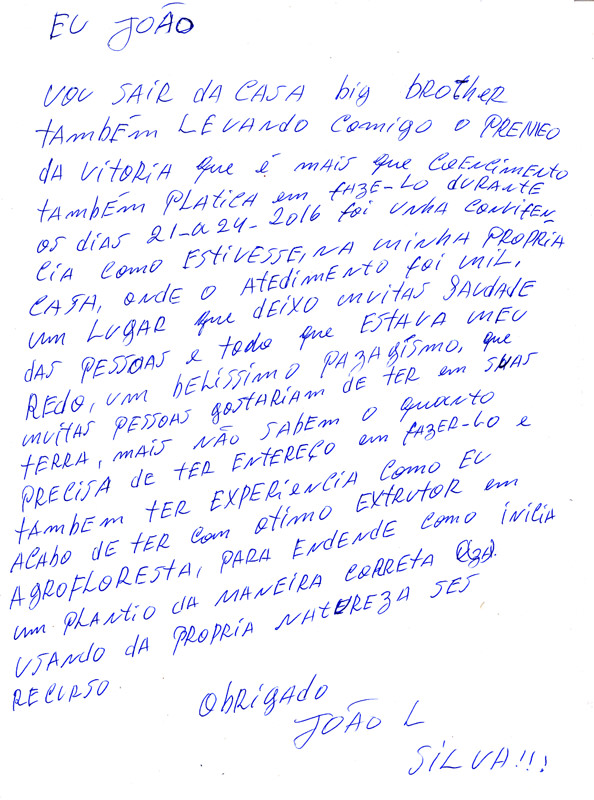 EU JOÃO
VOU SAIR DA CASA big brother
tAMBÉM LEVANDO comigo o PREMEO
DA VITORIA que é mais que COENCIMENTO
tAMbÉM PLATICA em fAZE-LO DURANTE
OS DIAS 21-a 24-2016 foi UNHA CONVIFEN
CIA COMO ESTIVESSE, NA MINHA PROPRIA
CASA, ONDE O AtEDIMENTO foi MIL,
UM LUGAR que DEIXO MUITAS SAUDADE
DAS PESSOAS E todo que ESTAVA MEU
REDO, UM BELISSIMO PAZAGISMO, que
MUITAS PESSOAS GOSTARIAM DE TER em SUAS
TERRA, MAIS NÃO SABEM O quanto
PRECISA DE TER ENTEREÇO em fAZER-LO e
tAMBEM TER EXPERIENCIA COMO EU
ACABO DE TER COM OTIMO EXTRUTOR em
AGROFLORESTA, PARA ENDENDE COMO INICIA
UM PLANTIO DA MANEIRA CORRETA
USANDO DA PROPRIA NATUREZA SES
RECURSO
Obrigado
JOÃO L
SILVA!!!